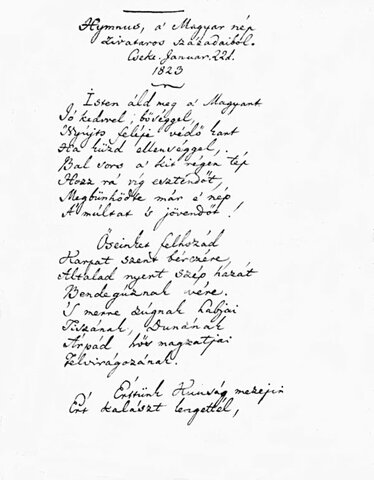 Hymnus, a' Magyar nép
zivataros századaiból.
Cseke Januar. 22d.
1823
Isten áld meg a' Magyart
Jó kedvvel, bőséggel,
Nyújts feléje védő kart
Ha küzd ellenséggel,
Bal sors a' kit régen tép
Hozz rá víg esztendőt,
Megbűnhödte már e' nép
A' múltat 's jövendőt!
Őseinket felhozád
Kárpát szent bérczére,
Általad nyert szép hazát
Bendegúznak vére.
'S merre zúgnak habjai
Tiszának, Dunának
Árpád hős magzatjai
Felvirágozának.
Értünk Kunság mezején
Ért kalászt lengettél,